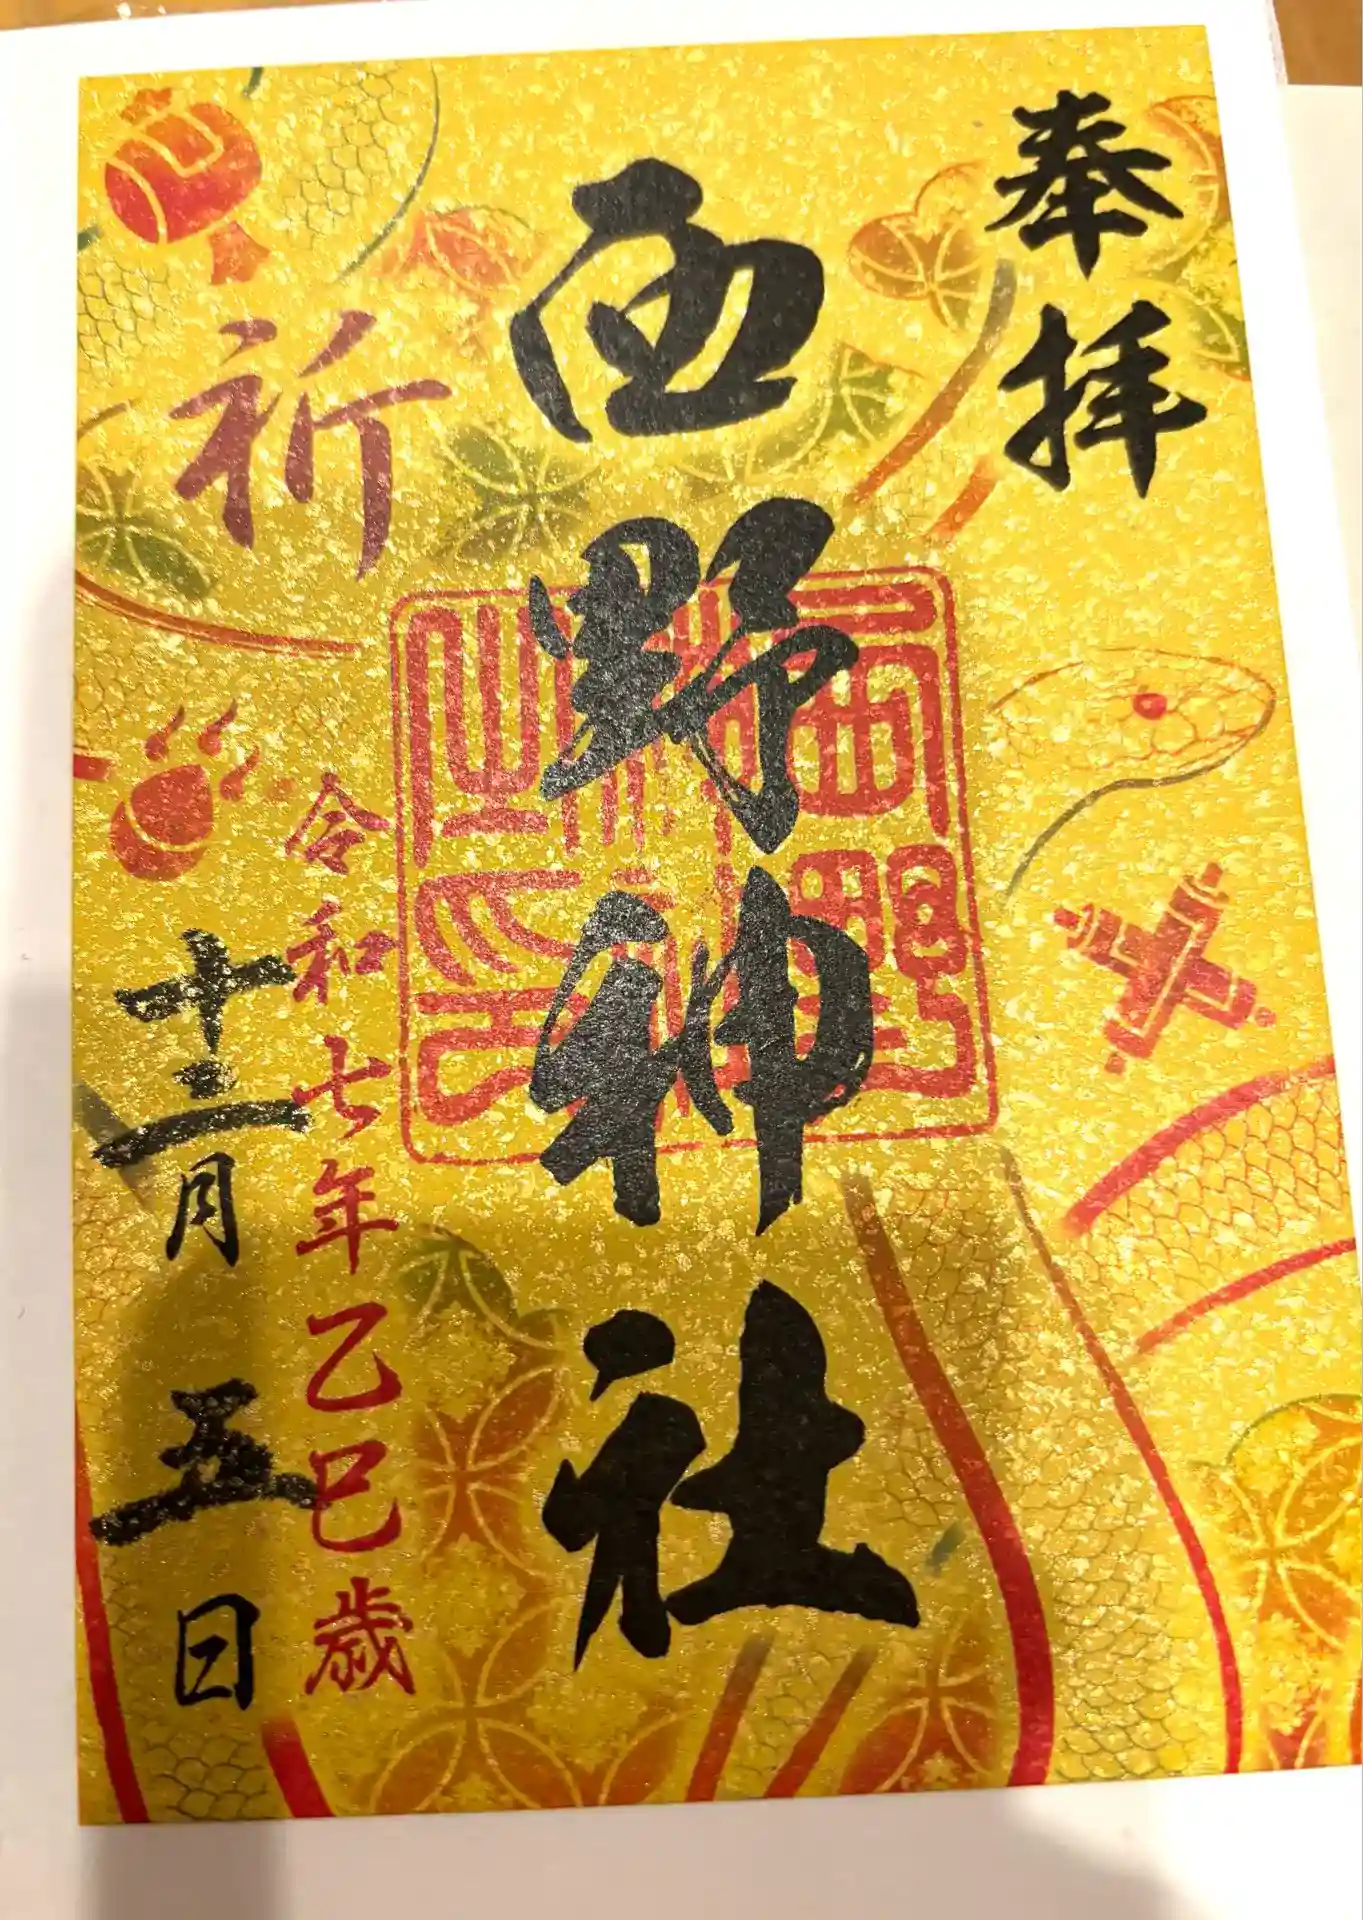 奉拝
西野神社
西野
神社
之印
祈
令和七年乙巳歳
十二月五日